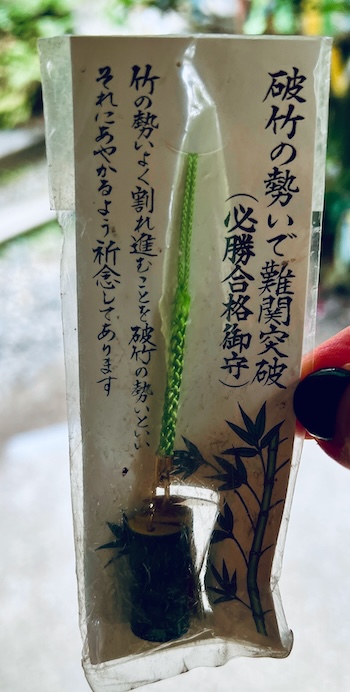 破竹の勢いで難関突破
(必勝合格御守)
竹の勢いよく割れ進むことを破竹の勢いといい
それにあやかるよう祈念してあります